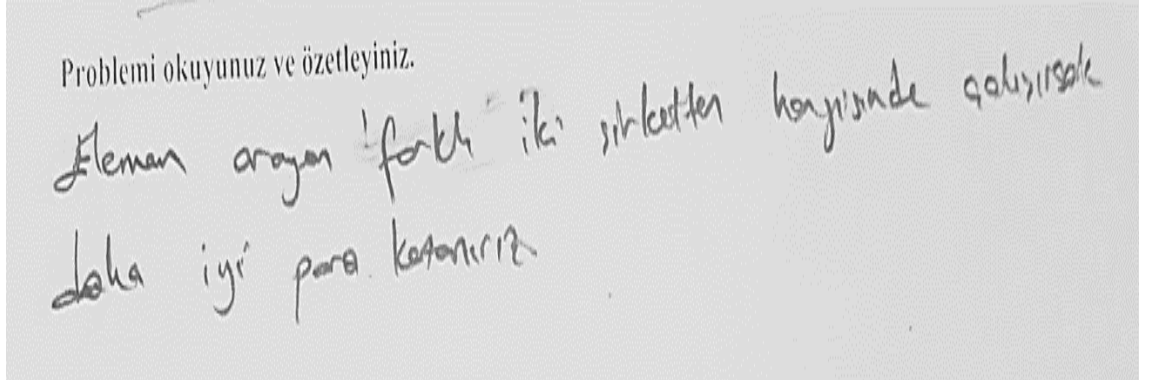 Problemi okuyunuz ve özetleyiniz.
Eleman arayan farklı iki şirketten hangisinde çalışırsak
daha iyi para kazanırız